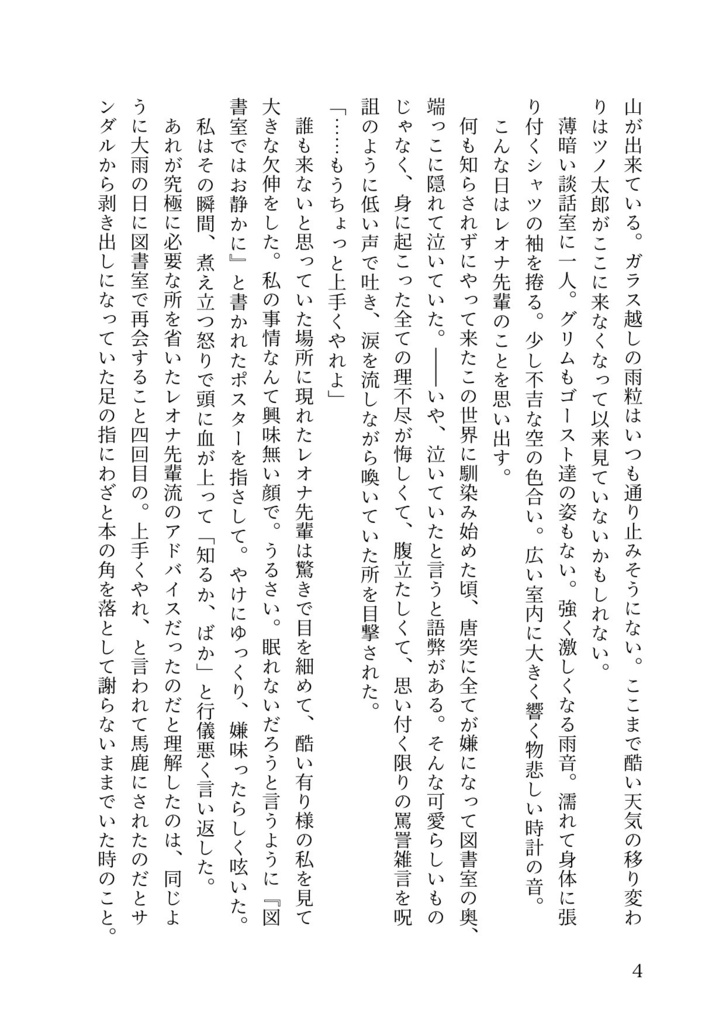 山が出来ている。ガラス越しの雨粒はいつも通り止みそうにない。ここまで酷い天気の移り変わ
りはツノ太郎がここに来なくなって以来見ていないかもしれない。
薄暗い談話室に一人。グリムもゴースト達の姿もない。強く激しくなる雨音。濡れて身体に張
り付くシャツの袖を捲る。少し不吉な空の色合い。広い室内に大きく響く物悲しい時計の音。
こんな日はレオナ先輩のことを思い出す。
何も知らされずにやって来たこの世界に馴染み始めた頃、唐突に全てが嫌になって図書室の奥、
端っこに隠れて泣いていた。――いや、泣いていたと言うと語弊がある。そんな可愛らしいもの
じゃなく、身に起こった全ての理不尽が悔しくて、腹立たしくて、思い付く限りの罵詈雑言を呪
詛のように低い声で吐き、涙を流しながら喚いていた所を目撃された。
「……もうちょっと上手くやれよ」
誰も来ないと思っていた場所に現れたレオナ先輩は驚きで目を細めて、酷い有り様の私を見て
大きな欠伸をした。私の事情なんて興味無い顔で。うるさい。眠れないだろうと言うように『図
書室ではお静かに』と書かれたポスターを指さして。やけにゆっくり、嫌味ったらしく呟いた。
私はその瞬間、煮え立つ怒りで頭に血が上って「知るか、ばか」と行儀悪く言い返した。
あれが究極に必要な所を省いたレオナ先輩流のアドバイスだったのだと理解したのは、同じよ
うに大雨の日に図書室で再会すること四回目の。上手くやれ、と言われて馬鹿にされたのだとサ
ンダルから剥き出しになっていた足の指にわざと本の角を落として謝らないままでいた時のこと。
4